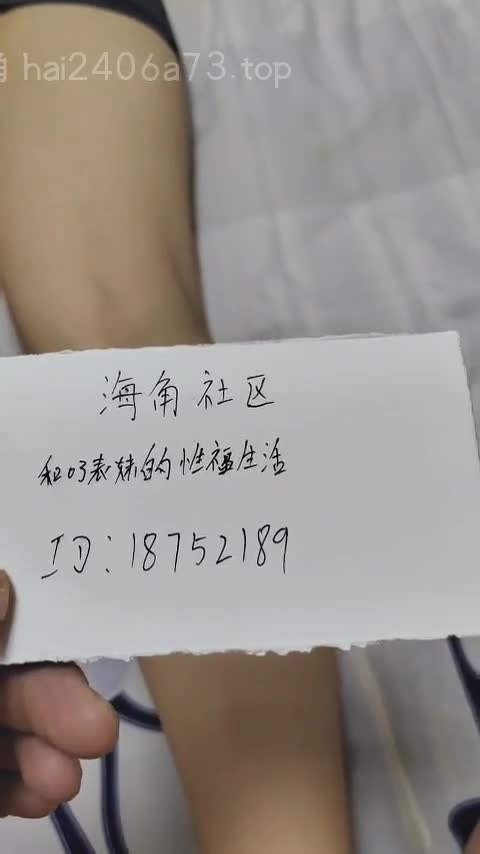 hai2406a73.top
海角社区
和03表妹的性福生活
ID:18752189